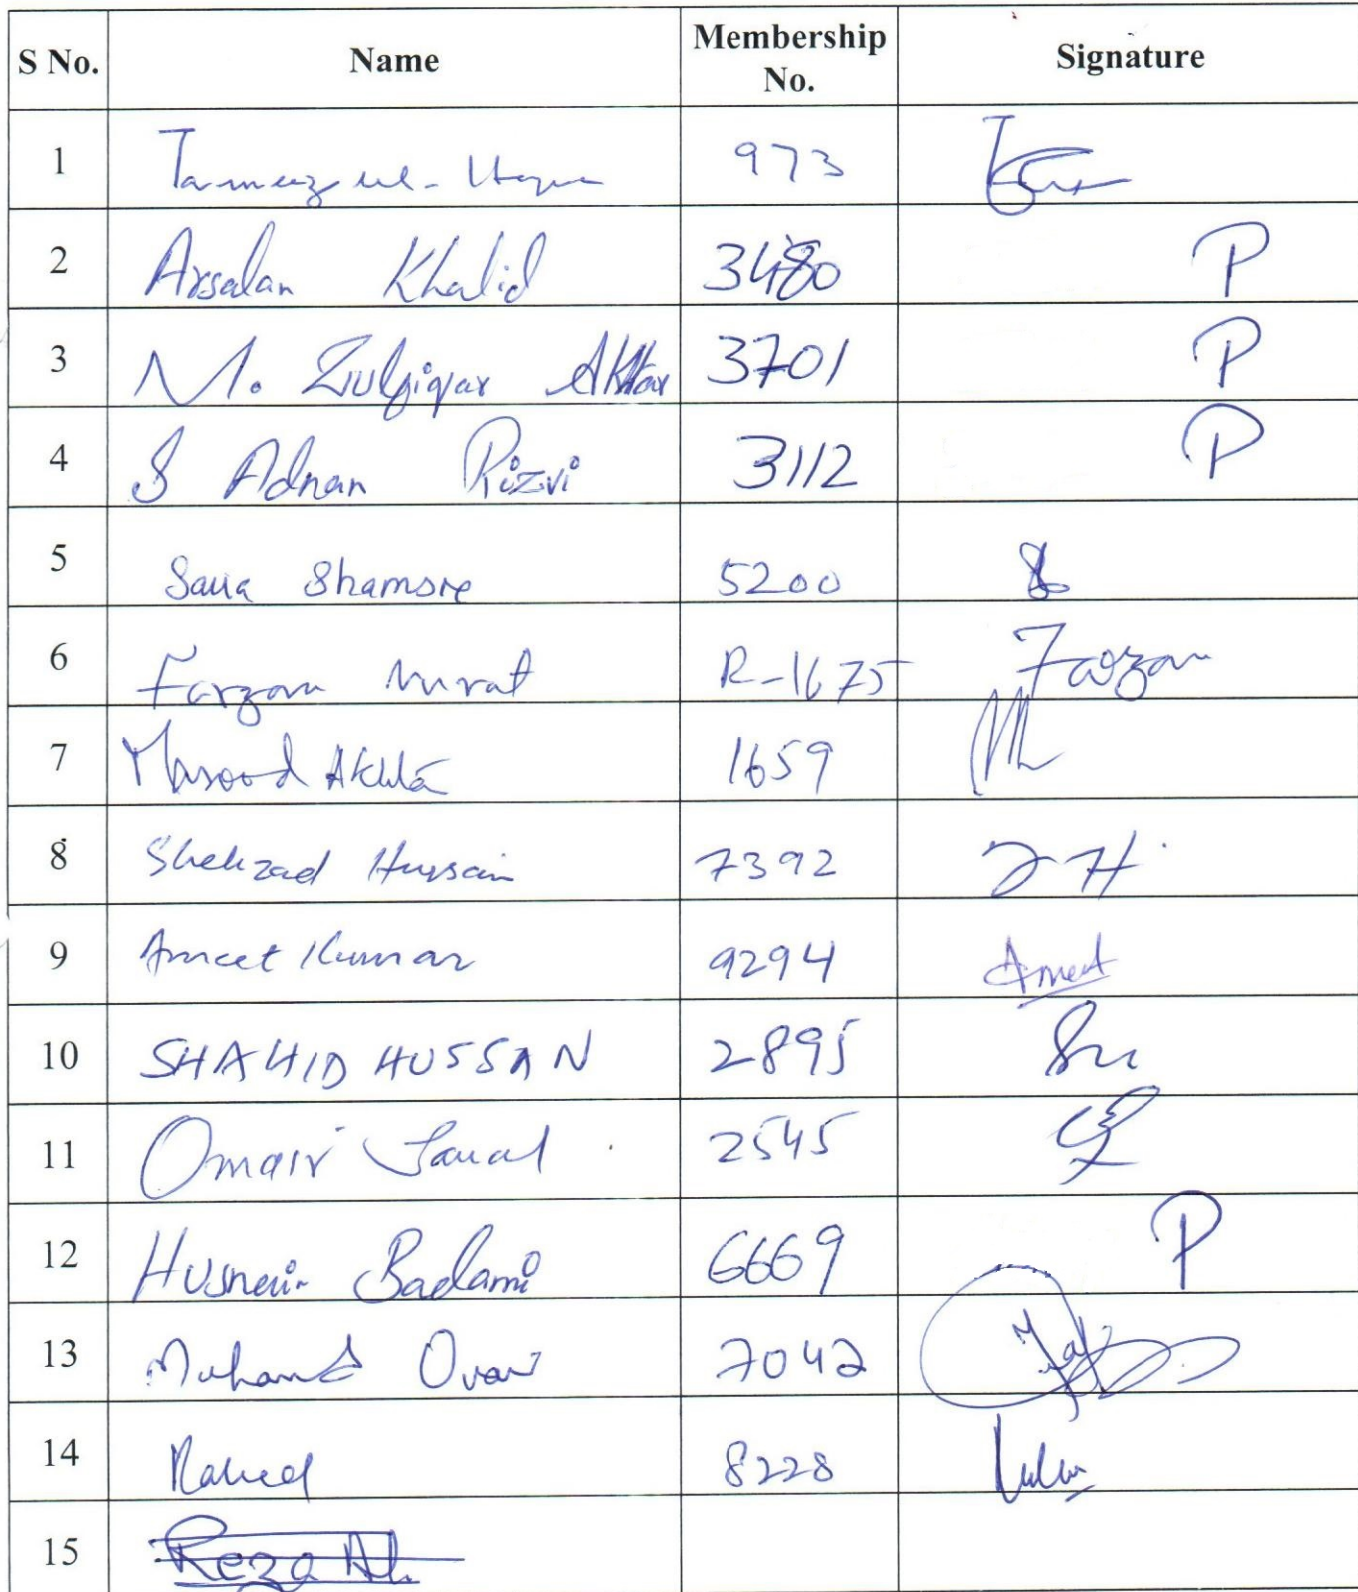 S No. Name Membership No. Signature
1 Tameez ul-Haque 973
2 Arsalan Khalid 3480 P
3 M. Zulfiqar Akhtar 3701 P
4 S Adnan Rizvi 3112 P
5 Sana Shamsie 5200
6 Farzana R-1675 Farzan
7 Masood Akhtar 1659
8 Shehzad Hussain 7392 SH
9 Ameet Kumar 9294 Ameet
10 SHAHID HUSSAN 2895
11 Omair 2545
12 Husnein Badami 6669 P
13 Muhammad Ovais 7042
14 8228
15 Reza Ali